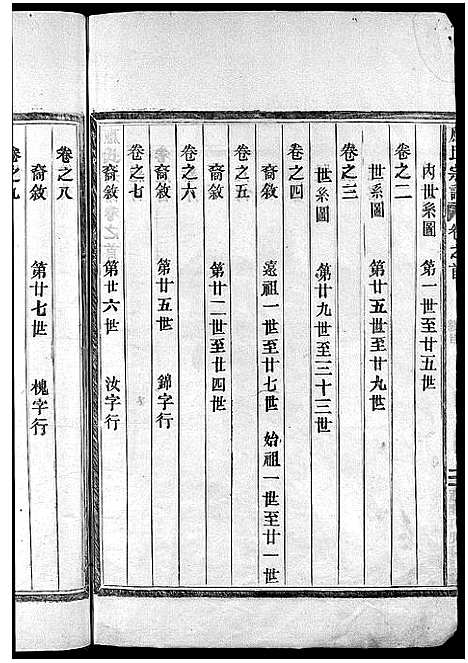 氏宗譜 卷之首
內世系圖 第一世至廿五世
卷之二
世系圖 第廿五世至廿九世
卷之三
世系圖 第廿九世至三十三世
卷之四
裔敘 遠祖一世至廿七世 始祖一世至廿一世
卷之五
裔敘 第廿二世至廿四世
卷之六
裔敘 第廿五世 錦字行
卷之七
裔敘 第廿六世 汝字行
卷之八
裔敘 第廿七世 槐字行
卷之九